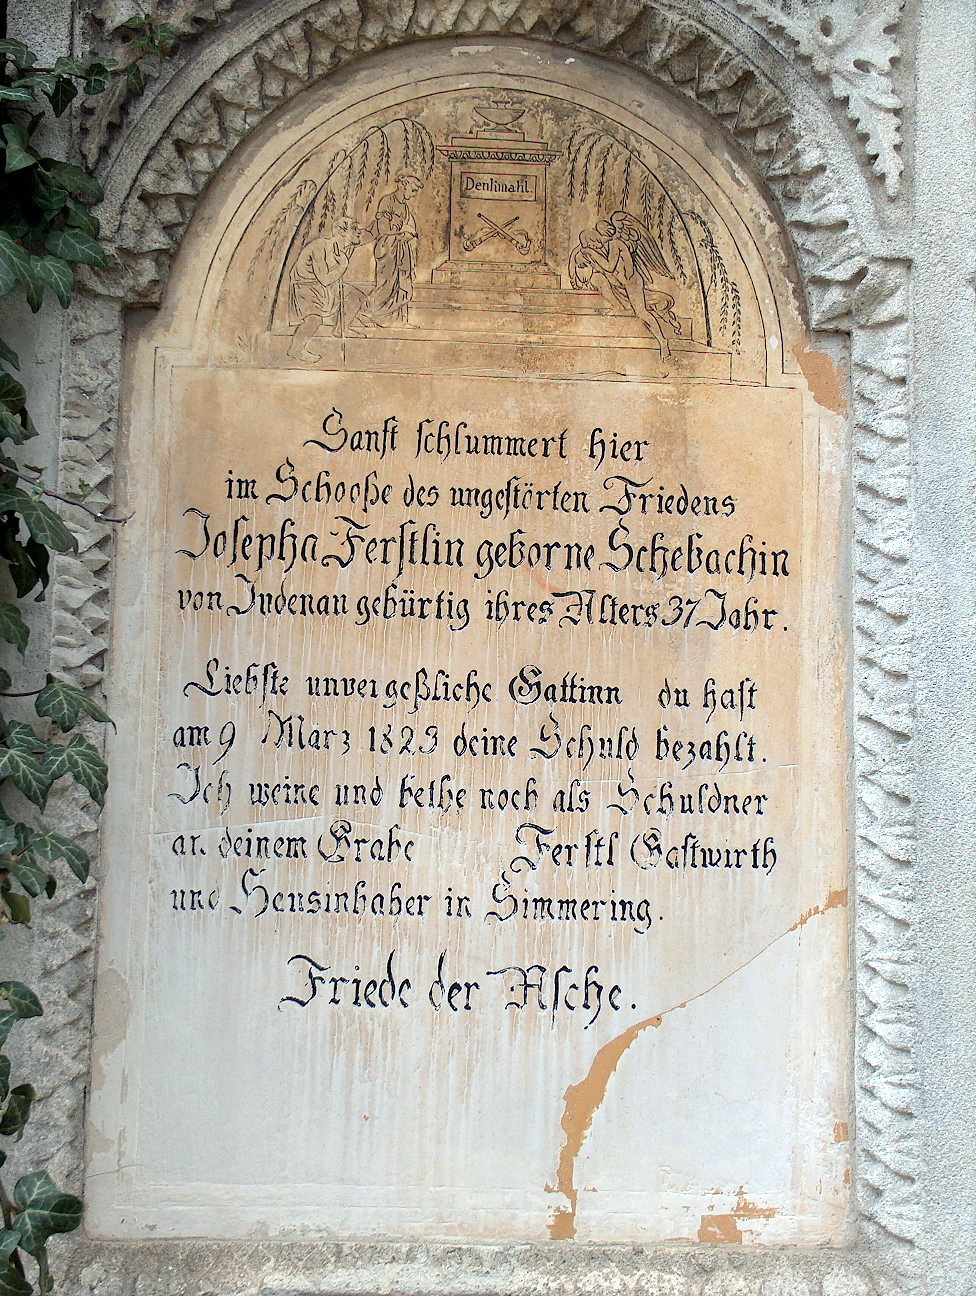 Denkmahl.
Sanft schlummert hier
im Schooße des ungestörten Friedens
Josepha Ferstlin geborne Schebachin
von Judenau gebürtig ihres Alters 37 Jahr.
Liebste unvergeßliche Gattinn du hast
am 9 März 1823 deine Schuld bezahlt.
Ich weine und bethe noch als Schuldner
an deinem Grabe Ferstl Gastwirth
und Hausinhaber in Simmering.
Friede der Asche.